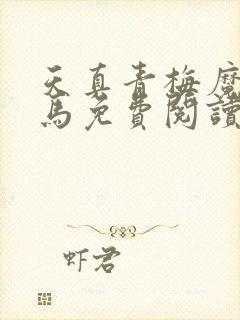 天真青梅魔
馬免費閱讀
虾君